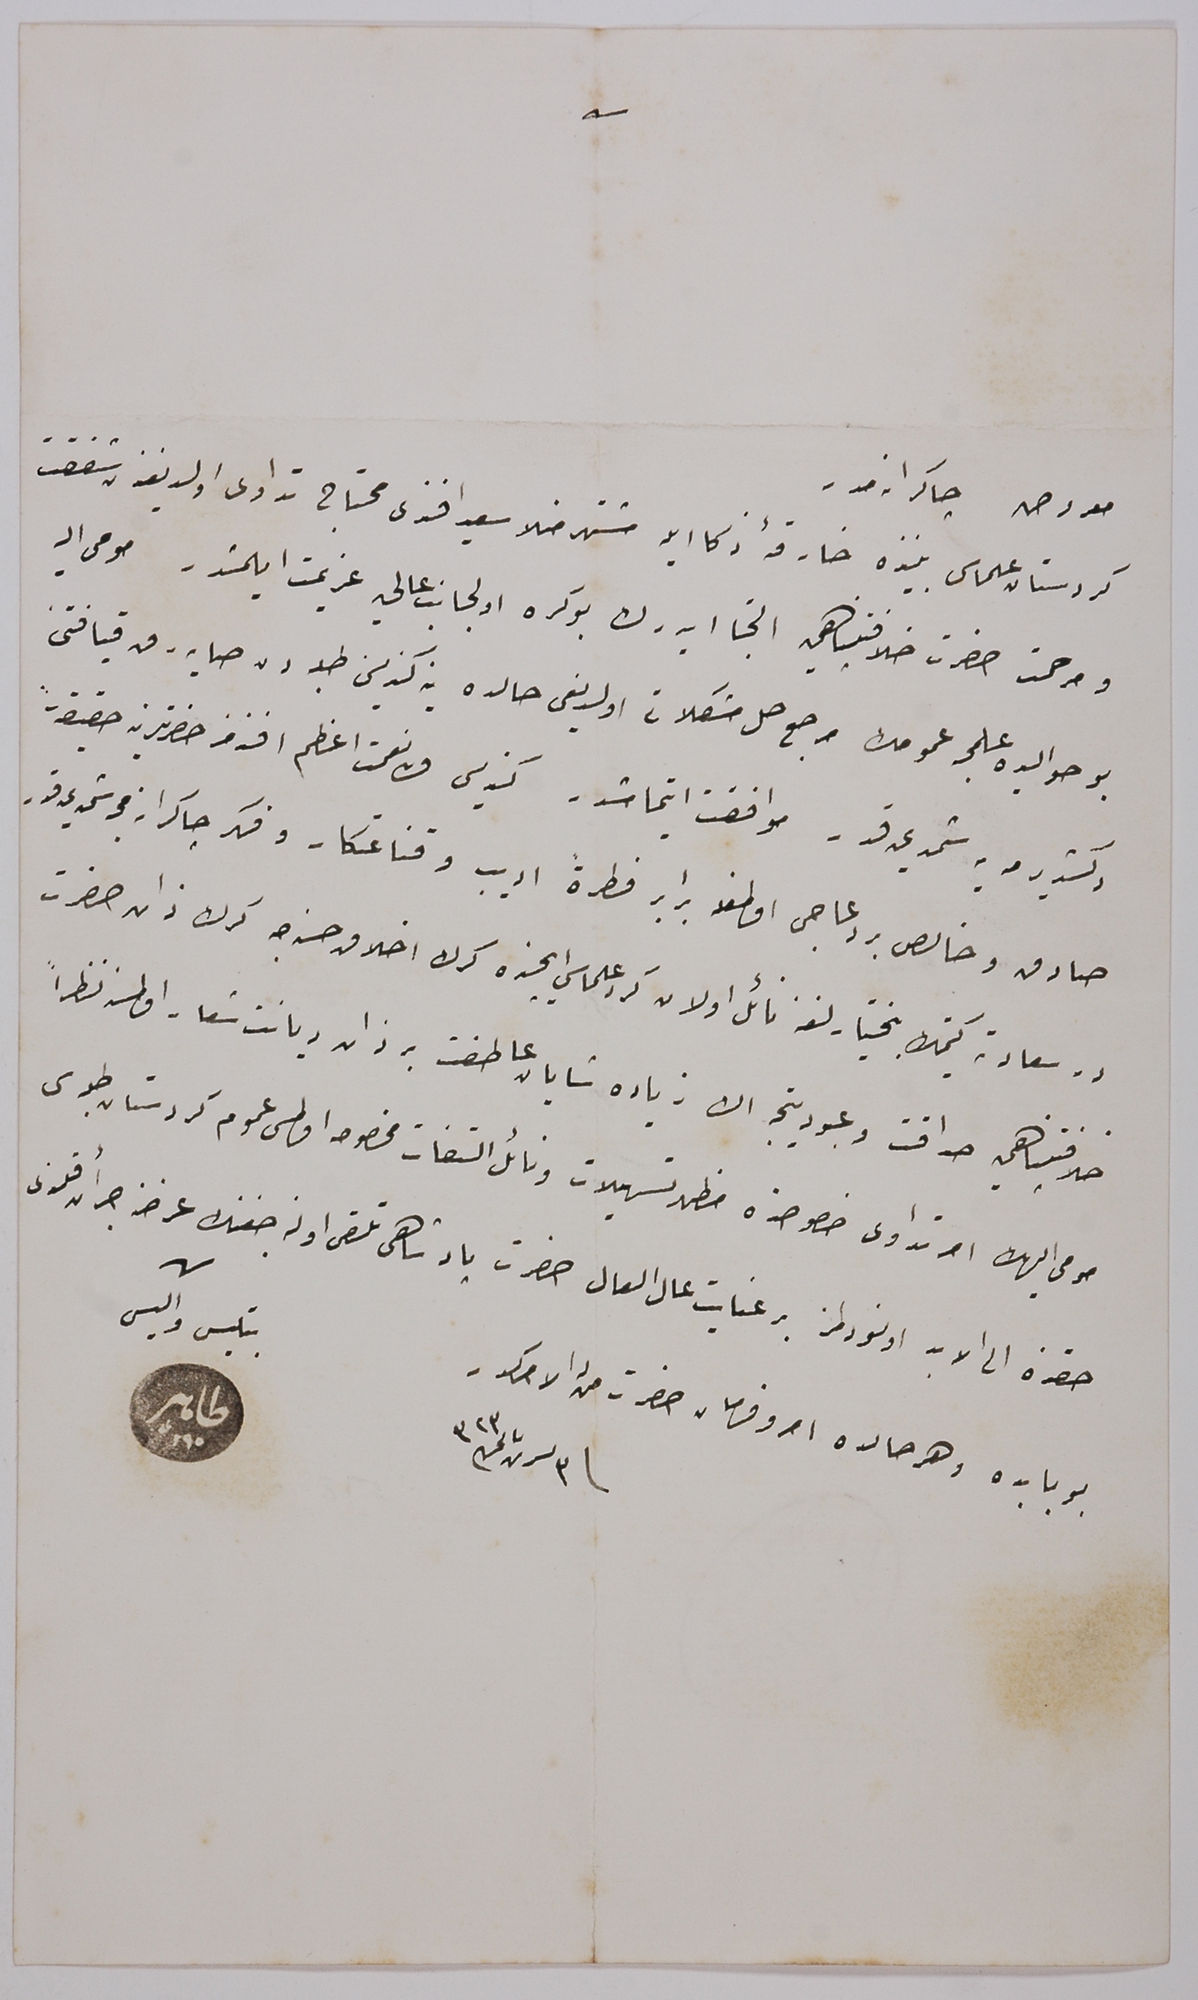 معروض چاکرانه مدر
کردستان علماسی بیننده خارقهٔ ذکا ایله مشتهر منلا سعید افندی محتاج تداوی اولدیغندن شفقت
و مرحمت حضرت خلافتپناهی‌یه التجا ایدرك بوکره اولجانب عالی‌یه عزیمت ایلمشدر مومی الیه
بو حوالیده علمجه عمومك مرجع حل مشکلاتی اولدیغی حالده ینه کندیسنی طلبه دن صایه‌رق قیافتنی
دکشدیرمه‌یه شمدی‌یه قدر موافقت ایتمامشدر کندیسی ولی نعمت اعظم افندمز حضرتلرینه حقیقةً
صادق و خالص بر دعاجی اولمغله برابر فطرةً ادیب و قناعتکار و فکر چاکرانه‌مجه شمدی‌یه قدر
در سعادته کیتمك بختیارلغنه نائل اولان کرد علماسی ایچنده کرك اخلاق حسنه‌جه کرك ذات حضرت
خلافتپناهی‌یه صداقت و عبودیتجه اك زیاده شایان عاطفت بر ذات دیانت شعار اولمسنه نظراً
مومی الیهك امر تداوی خصوصنده مظهر تسهیلات و نائل التفات مخصوصه اولمسی عموم کردستان طلبه‌سی
حقنده الی الابد اونودلمز بر عنایت عال العال حضرت پادشاهی تلقی اولنه جغنك عرضنه جرأت قلندی
بو بابده و هر حالده امر و فرمان حضرت من له الامرکدر
فی ٣ تشرین ثانی ٣٢٣
بتلیس والیسی
طاهر